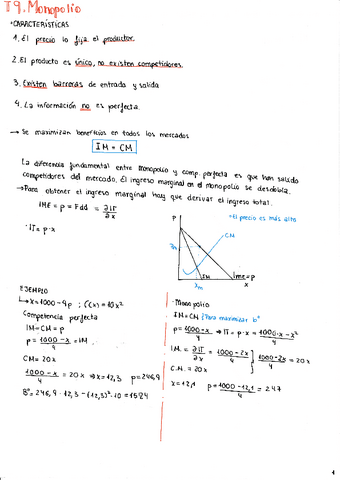 T9. Monopolio
• CARACTERÍSTICAS
1. El precio lo fija el productor.
2. El producto es único, no existen competidores.
3. Existen barreras de entrada y salida
4. La información no es perfecta.
→ Se maximizan beneficios en todos los mercados
IM = CM
La diferencia fundamental entre Monopolio y comp. perfecta es que han salido
competidores del mercado. El ingreso marginal en el monopolio se desdobla.
→ Para obtener el ingreso marginal hay que derivar el ingreso total.
IME = p = Fdd = ∂IT/∂x
· IT = p · x
• El precio es más alto
P
CM
Pm
xm
IM
Ime = P
x
EJEMPLO
↳ x = 1000 - 4p ; C(x) = 10x²
Competencia perfecta
IM = CM = P
p = (1000 - x)/4 = IM
CM = 20x
(1000 - x)/4 = 20x → x = 12,3 p = 246,9
Bº = 246,9 · 12,3 - (12,3)² · 10 = 1524
• Monopolio
IM = CM (Para maximizar bº
p = (1000 - x)/4 → IT = p · x = (1000 · x - x²)/4
IM = ∂IT/∂x = (1000 - 2x)/4 } (1000 - 2x)/4 = 20x
C.M. = 20x
x = 12,1 p = (1000 - 12,1)/4 = 247
1